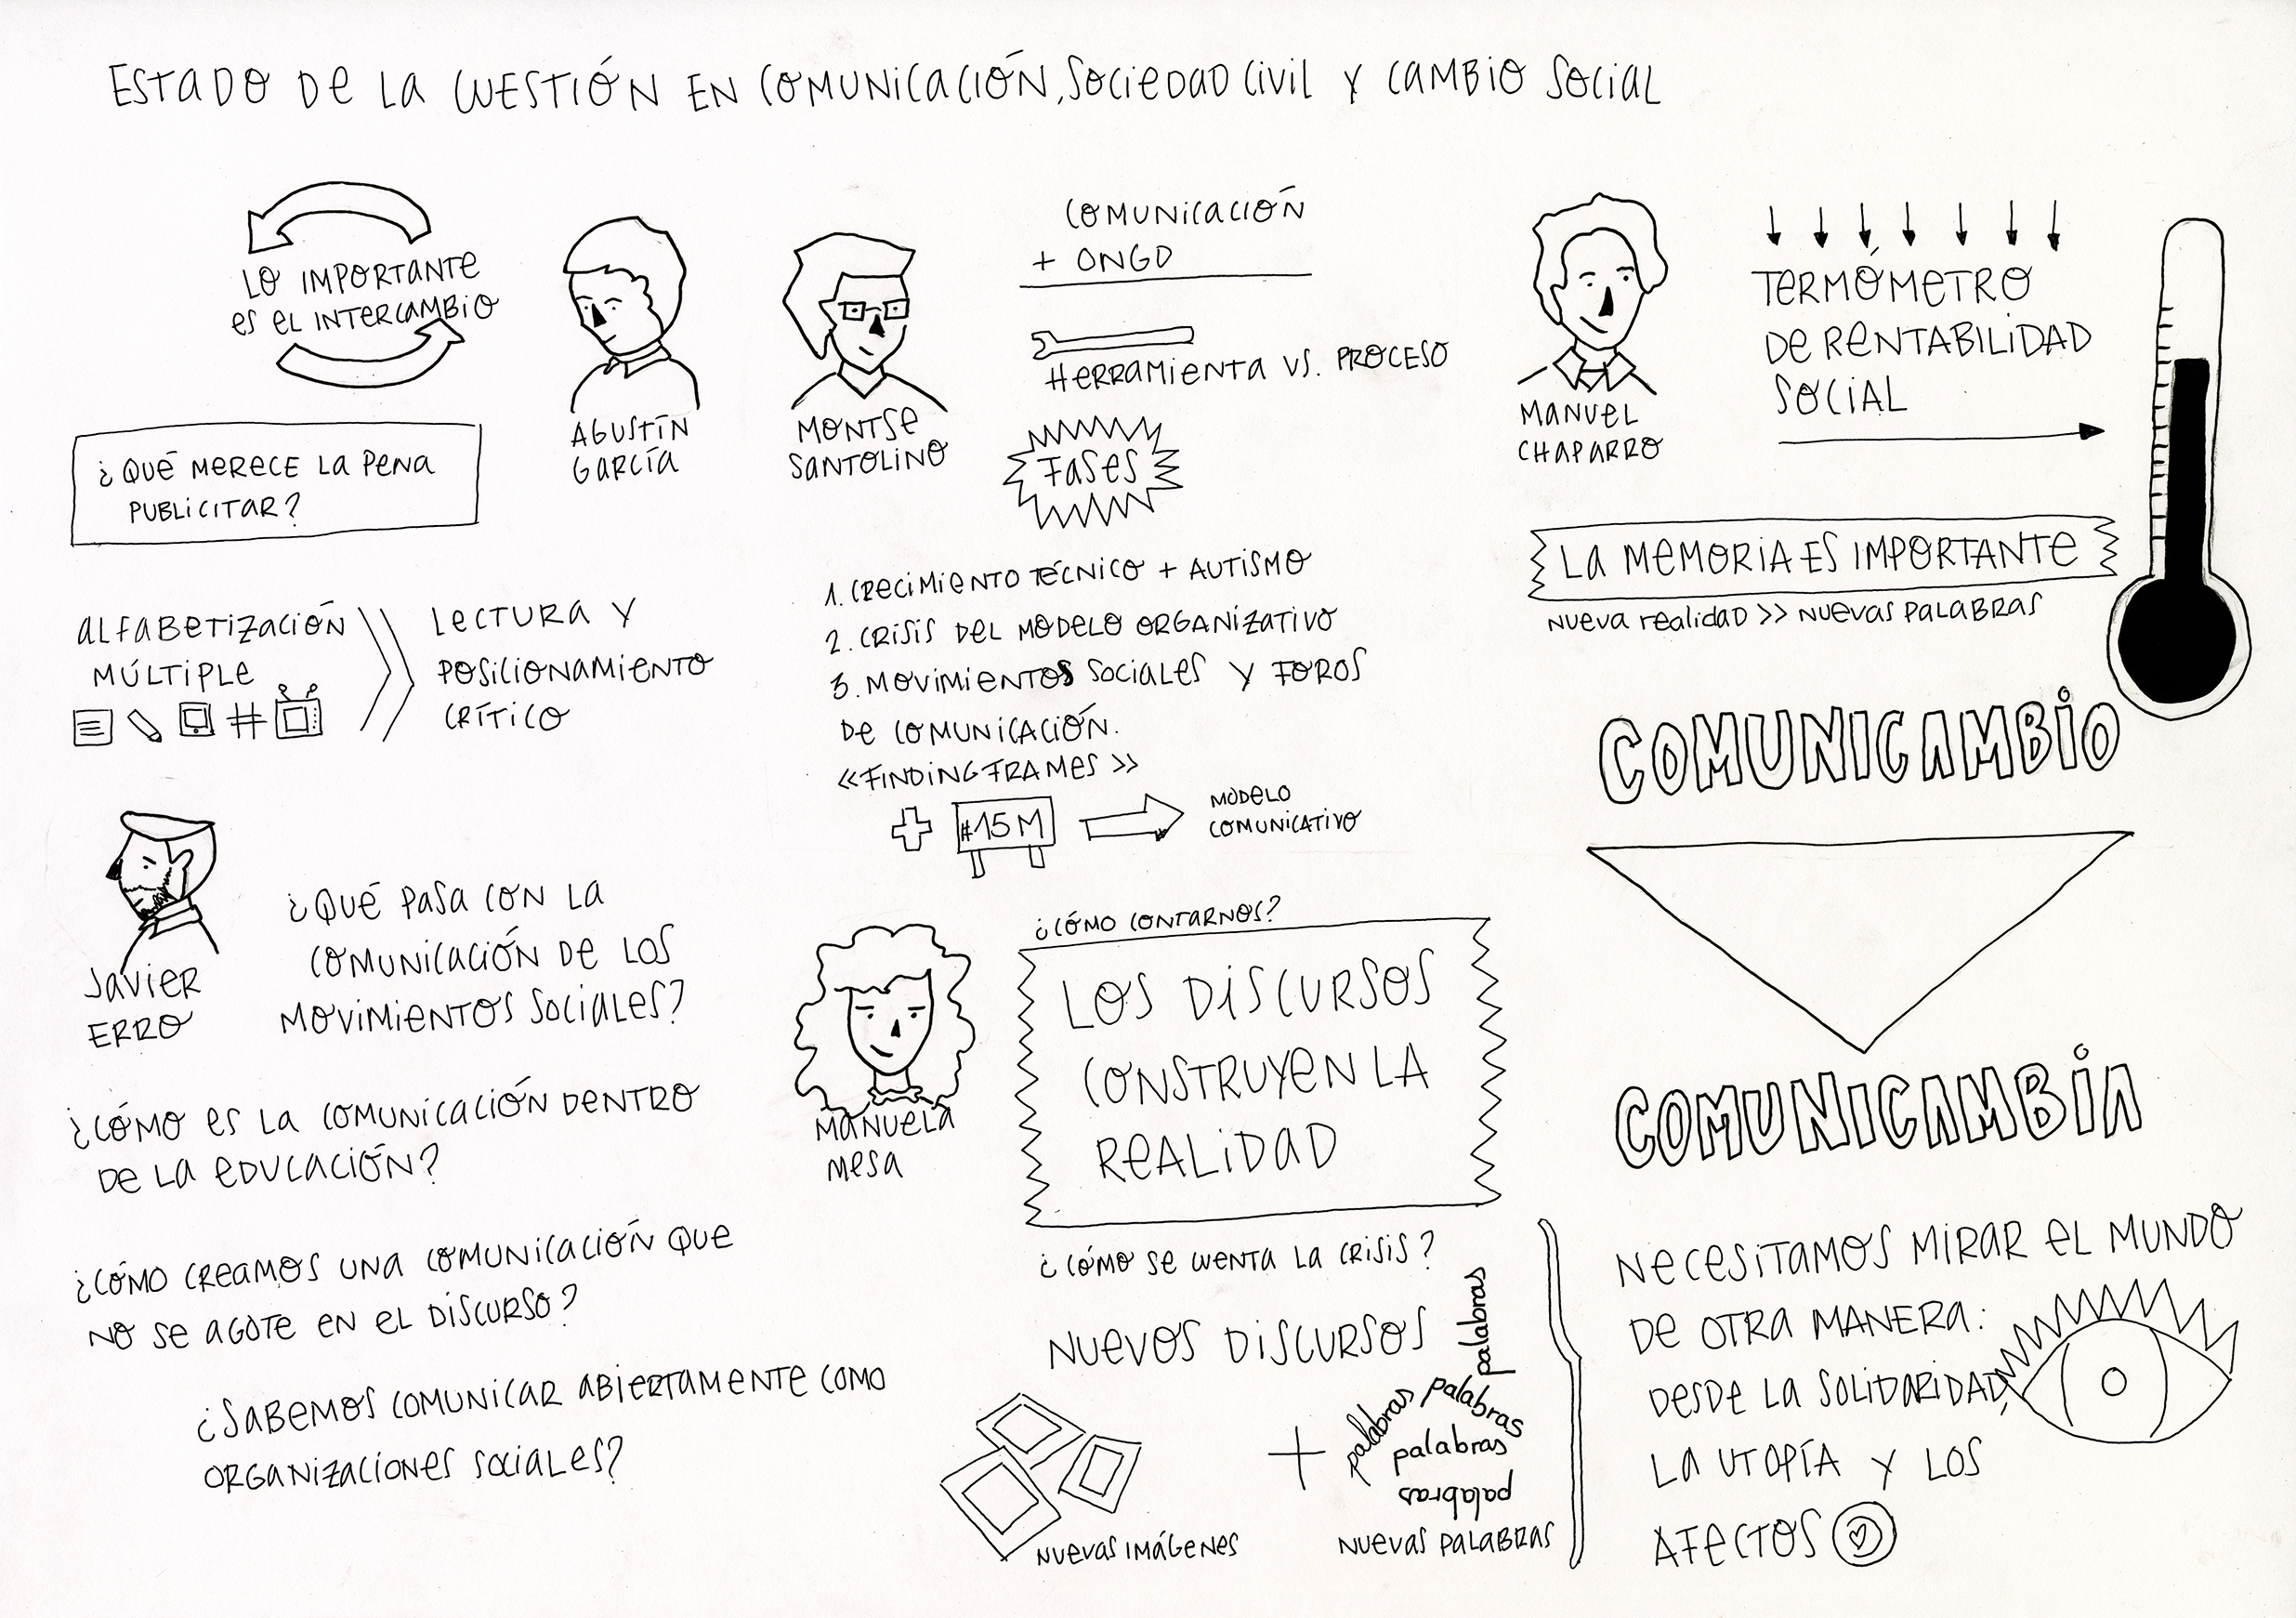 ESTADO DE LA CUESTIÓN EN COMUNICACIÓN, SOCIEDAD CIVIL Y CAMBIO SOCIAL
LO IMPORTANTE
ES EL INTERCAMBIO
¿QUÉ MERECE LA PENA
PUBLICITAR?
AGUSTÍN
GARCÍA
ALFABETIZACIÓN
MÚLTIPLE
#
LECTURA Y
POSICIONAMIENTO
CRÍTICO
MONTSE
SANTOLINO
COMUNICACIÓN
+ ONGD
HERRAMIENTA VS. PROCESO
FASES
1. CRECIMIENTO TÉCNICO + AUTISMO
2. CRISIS DEL MODELO ORGANIZATIVO
3. MOVIMIENTOS SOCIALES Y FOROS
DE COMUNICACIÓN.
«FINDING FRAMES»
#15M
MODELO
COMUNICATIVO
MANUEL
CHAPARRO
TERMÓMETRO
DE RENTABILIDAD
SOCIAL
LA MEMORIA ES IMPORTANTE
NUEVA REALIDAD >> NUEVAS PALABRAS
COMUNICAMBIO
COMUNICAMBIA
NECESITAMOS MIRAR EL MUNDO
DE OTRA MANERA:
DESDE LA SOLIDARIDAD,
LA UTOPÍA Y LOS
AFECTOS
JAVIER
ERRO
¿QUÉ PASA CON LA
COMUNICACIÓN DE LOS
MOVIMIENTOS SOCIALES?
¿CÓMO ES LA COMUNICACIÓN DENTRO
DE LA EDUCACIÓN?
¿CÓMO CREAMOS UNA COMUNICACIÓN QUE
NO SE AGOTE EN EL DISCURSO?
¿SABEMOS COMUNICAR ABIERTAMENTE COMO
ORGANIZACIONES SOCIALES?
MANUELA
MESA
¿CÓMO CONTARNOS?
LOS DISCURSOS
CONSTRUYEN LA
REALIDAD
¿CÓMO SE CUENTA LA CRISIS?
NUEVOS DISCURSOS
NUEVAS IMÁGENES
+
palabras
palabras
palabras
palabras
palabras
NUEVAS PALABRAS